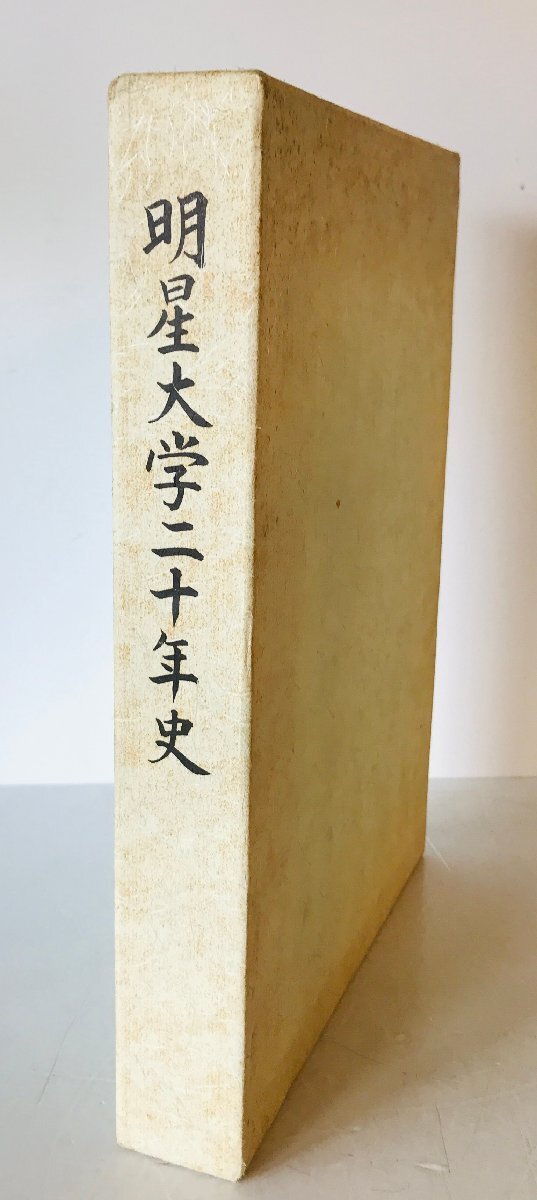 明星大学二十年史